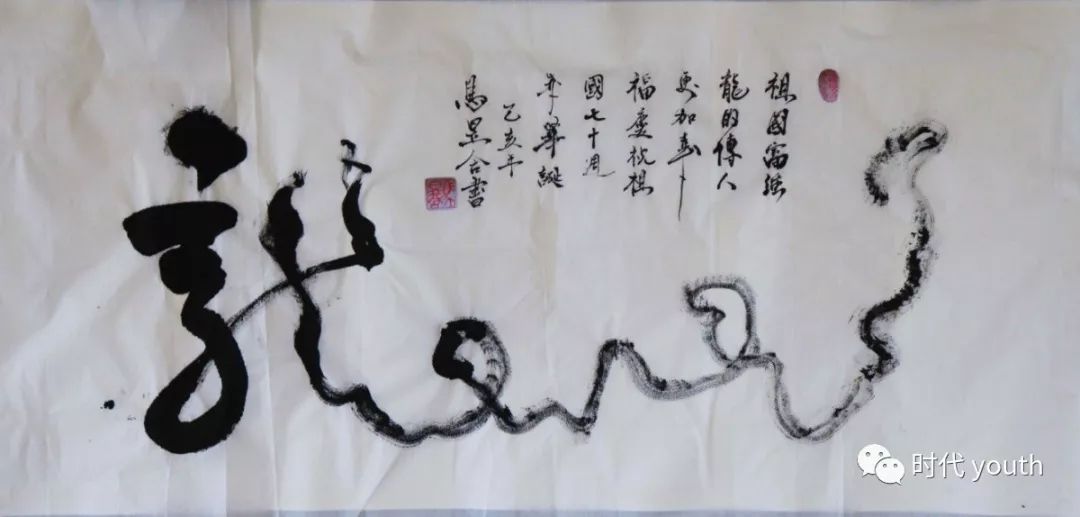 龍
祖國富強
龍的傳人
更加幸
福慶祝祖
國七十週
年華誕
己亥年
書
时代 youth